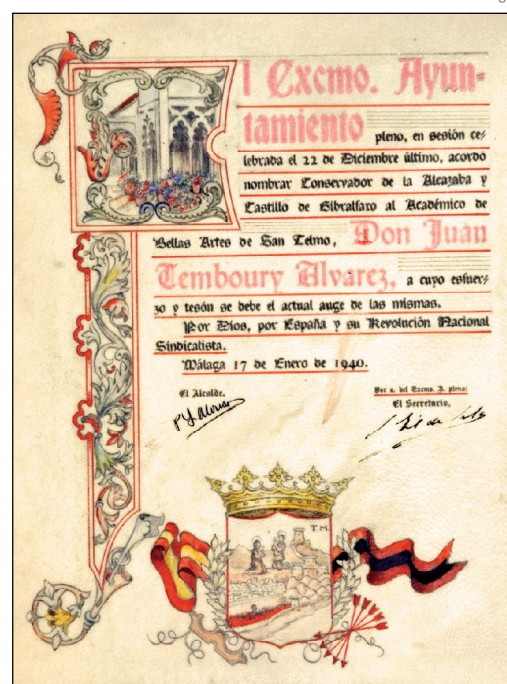 El Excmo. Ayun=
tamiento pleno, en sesión ce=
lebrada el 22 de Diciembre último, acordó
nombrar Conservador de la Alcazaba y
Castillo de Gibralfaro al Académico de
Bellas Artes de San Telmo, Don Juan
Temboury Alvarez, a cuyo esfuer=
zo y tesón se debe el actual auge de las mismas.
Por Dios, por España y su Revolución Nacional
Sindicalista.
Málaga 17 de Enero de 1940.
El Alcalde,
Por a. del Excmo. A. pleno:
El Secretario,
T.M.